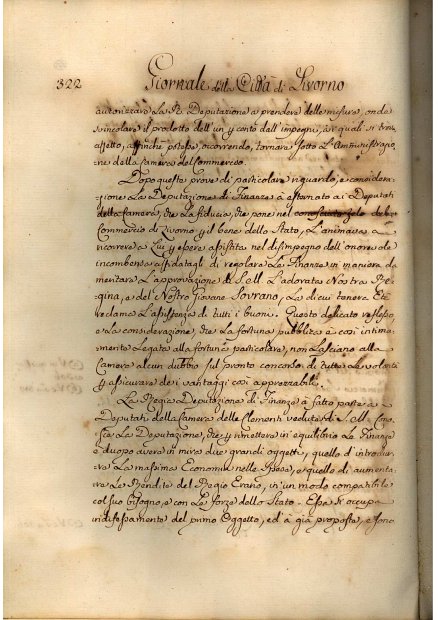 322 Giornale della Città di Livorno
autorizzare La R. Deputazione a prendere delle misure, onde
svincolare il prodotto dell'un p cento dall'impegni, ai quali si trova
affetto, affinche potesse, occorrendo, tornare sotto L'Amministrazio-
ne della Camera del Commercio.
Dopo queste prove di particolare riguardo, e considera-
zione La Deputazione di Finanze à esternato ai Deputati
della Camera, che La fiducia, che pone nel conosciuto zelo del
Commercio di Livorno p il bene dello Stato, L'animava a
ricorrere a Lui p essere assistita nel disimpegno dell'onorevole
incombenza affidatagli di regolare Le Finanze in maniera da
meritare L'approvazione di S. M. L'adorata Nostra Re-
gina, e del Nostro Giovane Sovrano, La di cui tenera Età
reclama L'assistenza di tutti i buoni. Questo delicato riflesso,
e La considerazione, che La fortuna pubblica è così intima-
mente Legata alla fortuna particolare, non Lasciano alla
Camera alcun dubbio sul pronto concorso di tutte Le volontà
p assicurare dei vantaggi così apprezzabili.
La Regia Deputazione di Finanze à fatto parte a'
Deputati della Camera delle clementi vedute di S. M. Cono-
sce La Deputazione, che p rimettere in equilibrio Le Finanze
è duopo avere in mira due grandi oggetti, quello d'introdur-
re La massima Economia nelle Spese, e quello di aumenta-
re Le Rendite del Regio Erario, in un modo compatibile
col suo bisogno, e con Le forze dello Stato. Essa si occupa
indefessamente del primo Oggetto, ed à già proposte, e sono